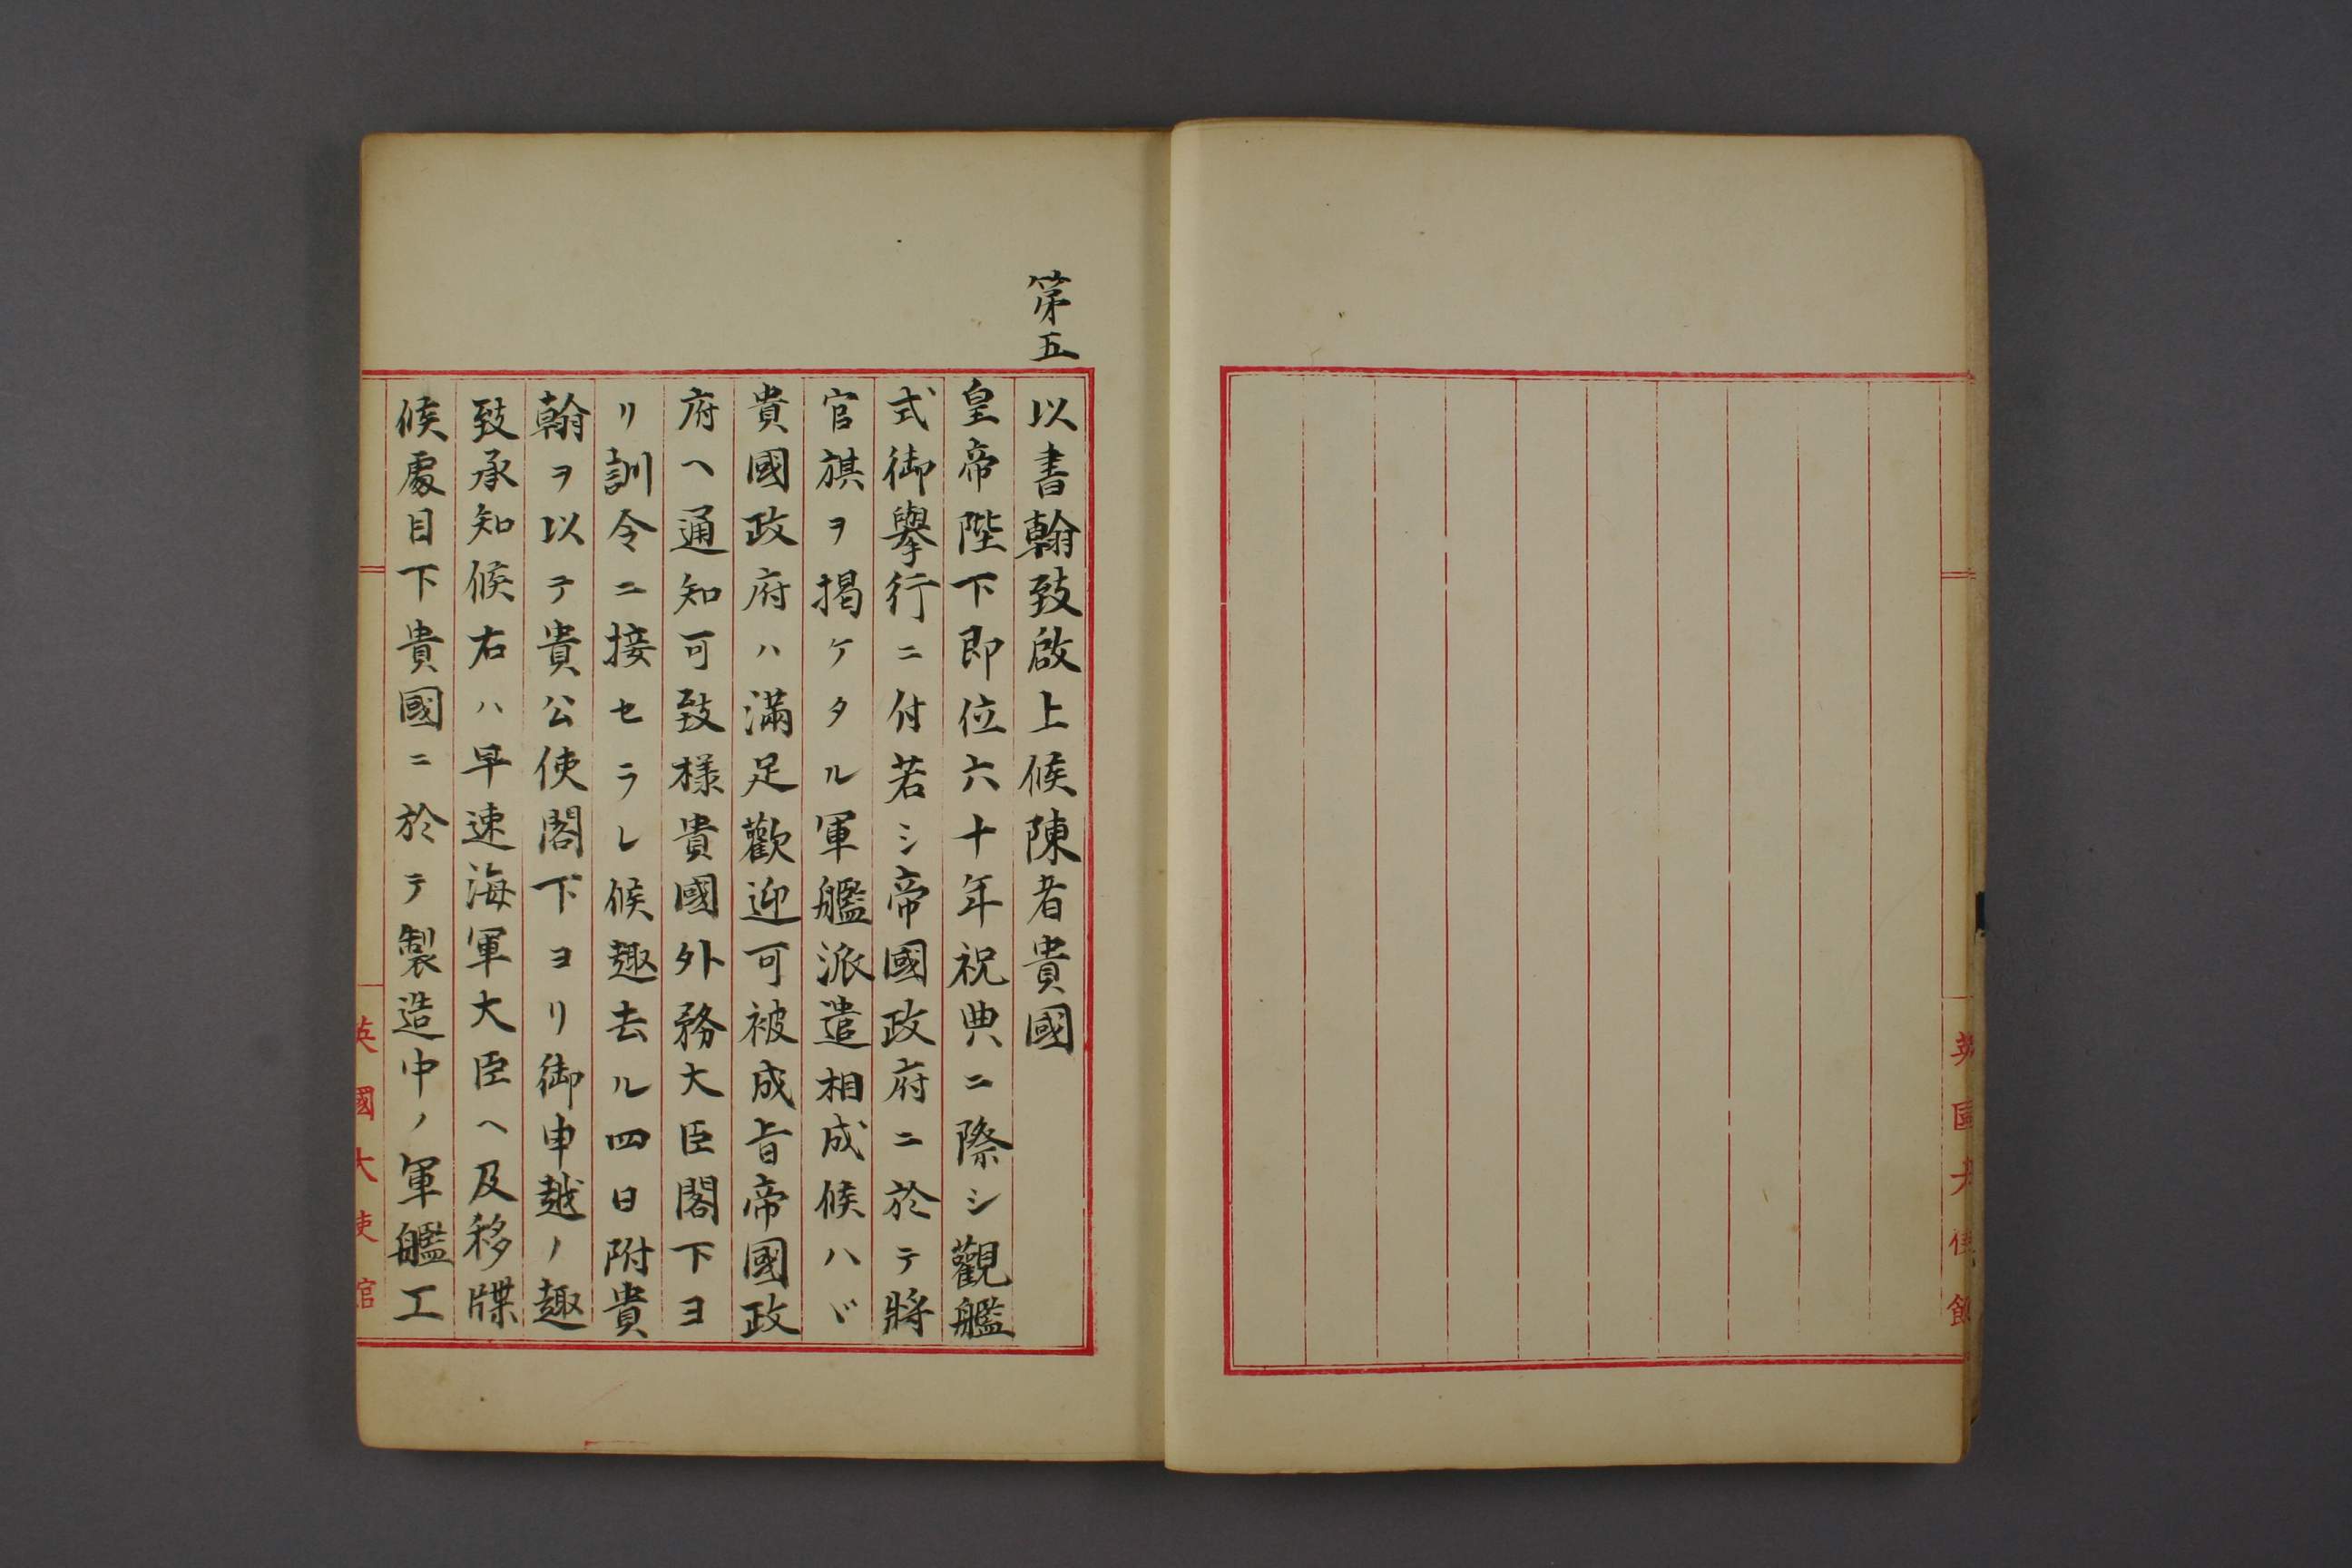 第五
以書翰致啟上候陳者貴國
皇帝陛下即位六十年祝典ニ際シ觀艦
式御擧行ニ付若シ帝國政府ニ於テ將
官旗ヲ掲ケタル軍艦派遣相成候ハヾ
貴國政府ハ滿足歡迎可被成旨帝國政
府ヘ通知可致樣貴國外務大臣閣下ヨ
リ訓令ニ接セラレ候趣去ル四日附貴
翰ヲ以テ貴公使閣下ヨリ御申越ノ趣
致承知候右ハ早速海軍大臣ヘ及移牒
候處目下貴國ニ於テ製造中ノ軍艦工
英國大使館